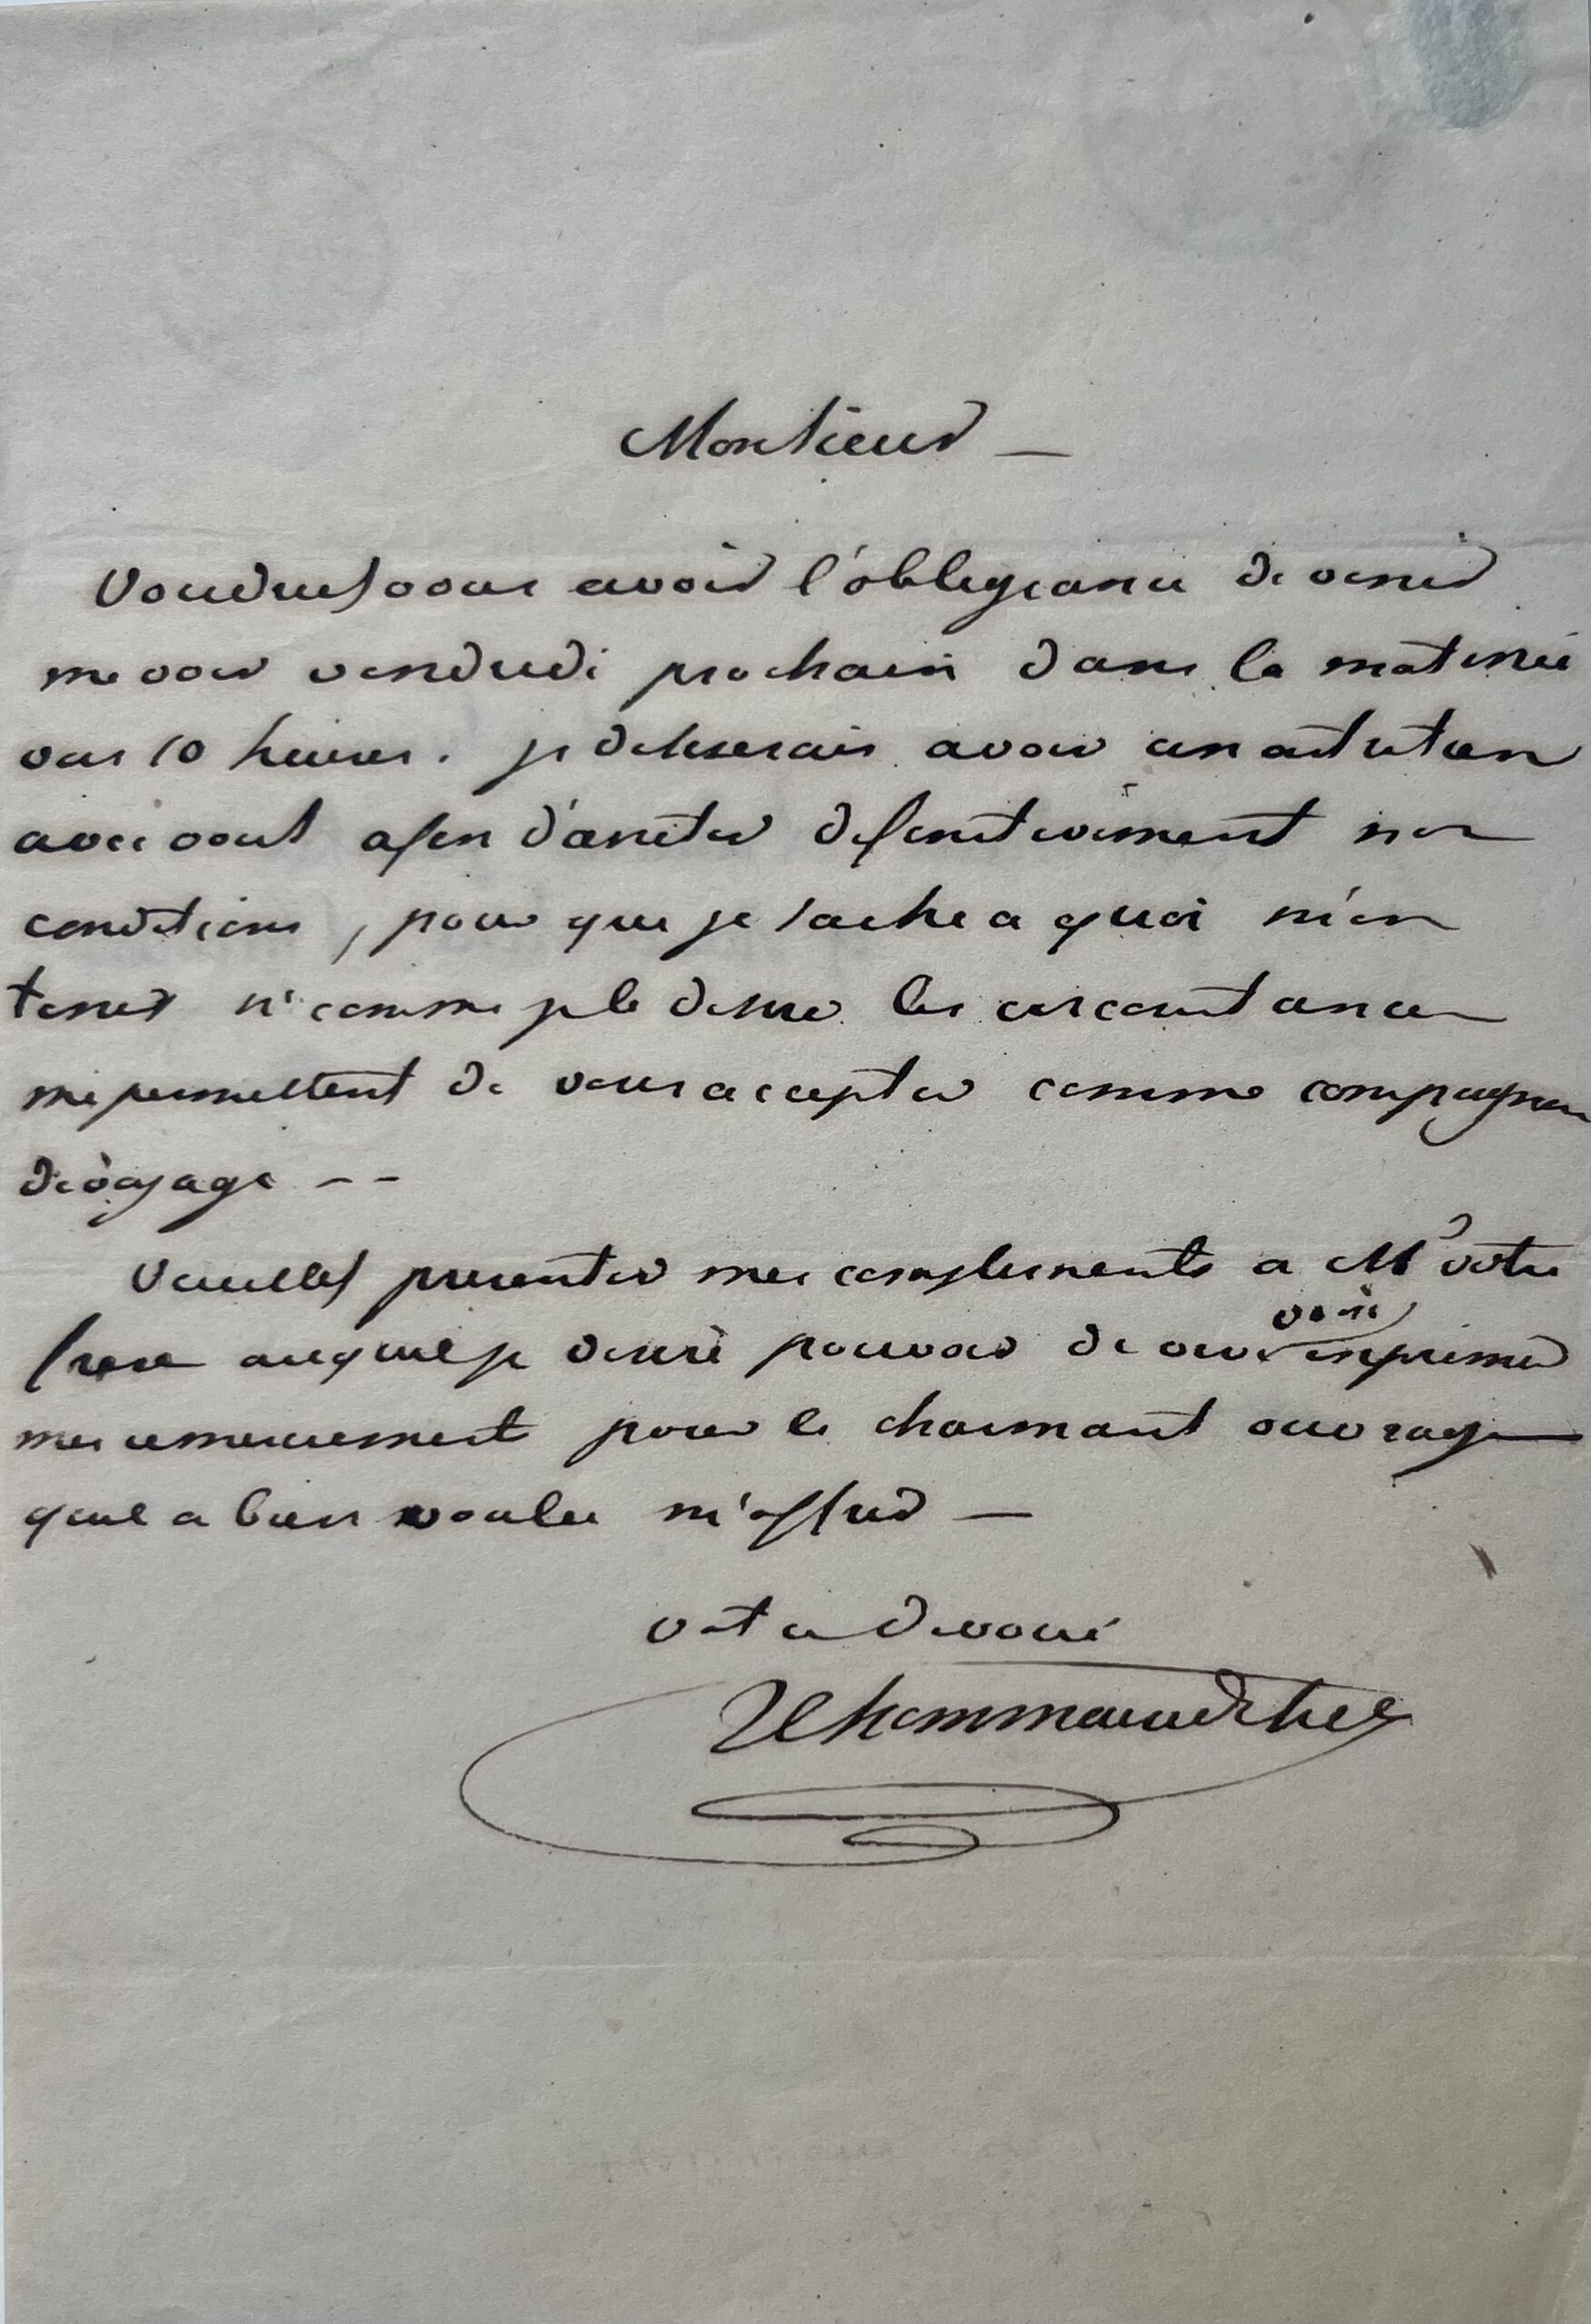 Monsieur —
Voudriez vous avoir l'obligeance de venir
me voir vendredi prochain dans la matinée
vers 10 heures. je desirerais avoir un entretien
avec vous afin d'arreter definitivement nos
conditions, pour que je sache a quoi m'en
tenir si comme je le desire les circonstances
me permettent de vous accepter comme compagnon
de voyage --
Veuillez presenter mes compliments a Mr votre
frere auquel je desire pouvoir de vive voix exprimer
mes remerciements pour le charmant ouvrage
qu'il a bien voulu m'offrir —
votre devoué